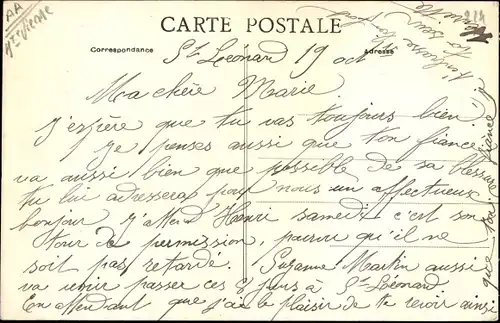 AA
Hte Vienne
CARTE POSTALE
Correspondance
Adresse
St Léonard 19 oct
Ma chère Marie
J'espère que tu vas toujours bien
je penses aussi que ton fiancé
va aussi bien que possible de sa blessure
tu lui adresseras pour nous un affectueux
bonjour J'attend Henri samedi c'est son
tour de permission, pourvu qu'il ne
soit pas retardé. Suzanne Martin aussi
va venir passer ces 8 jours à St Léonard.
En attendant que j'ai le plaisir de te revoir ainsi
que ton fiancé je
t'embrasse